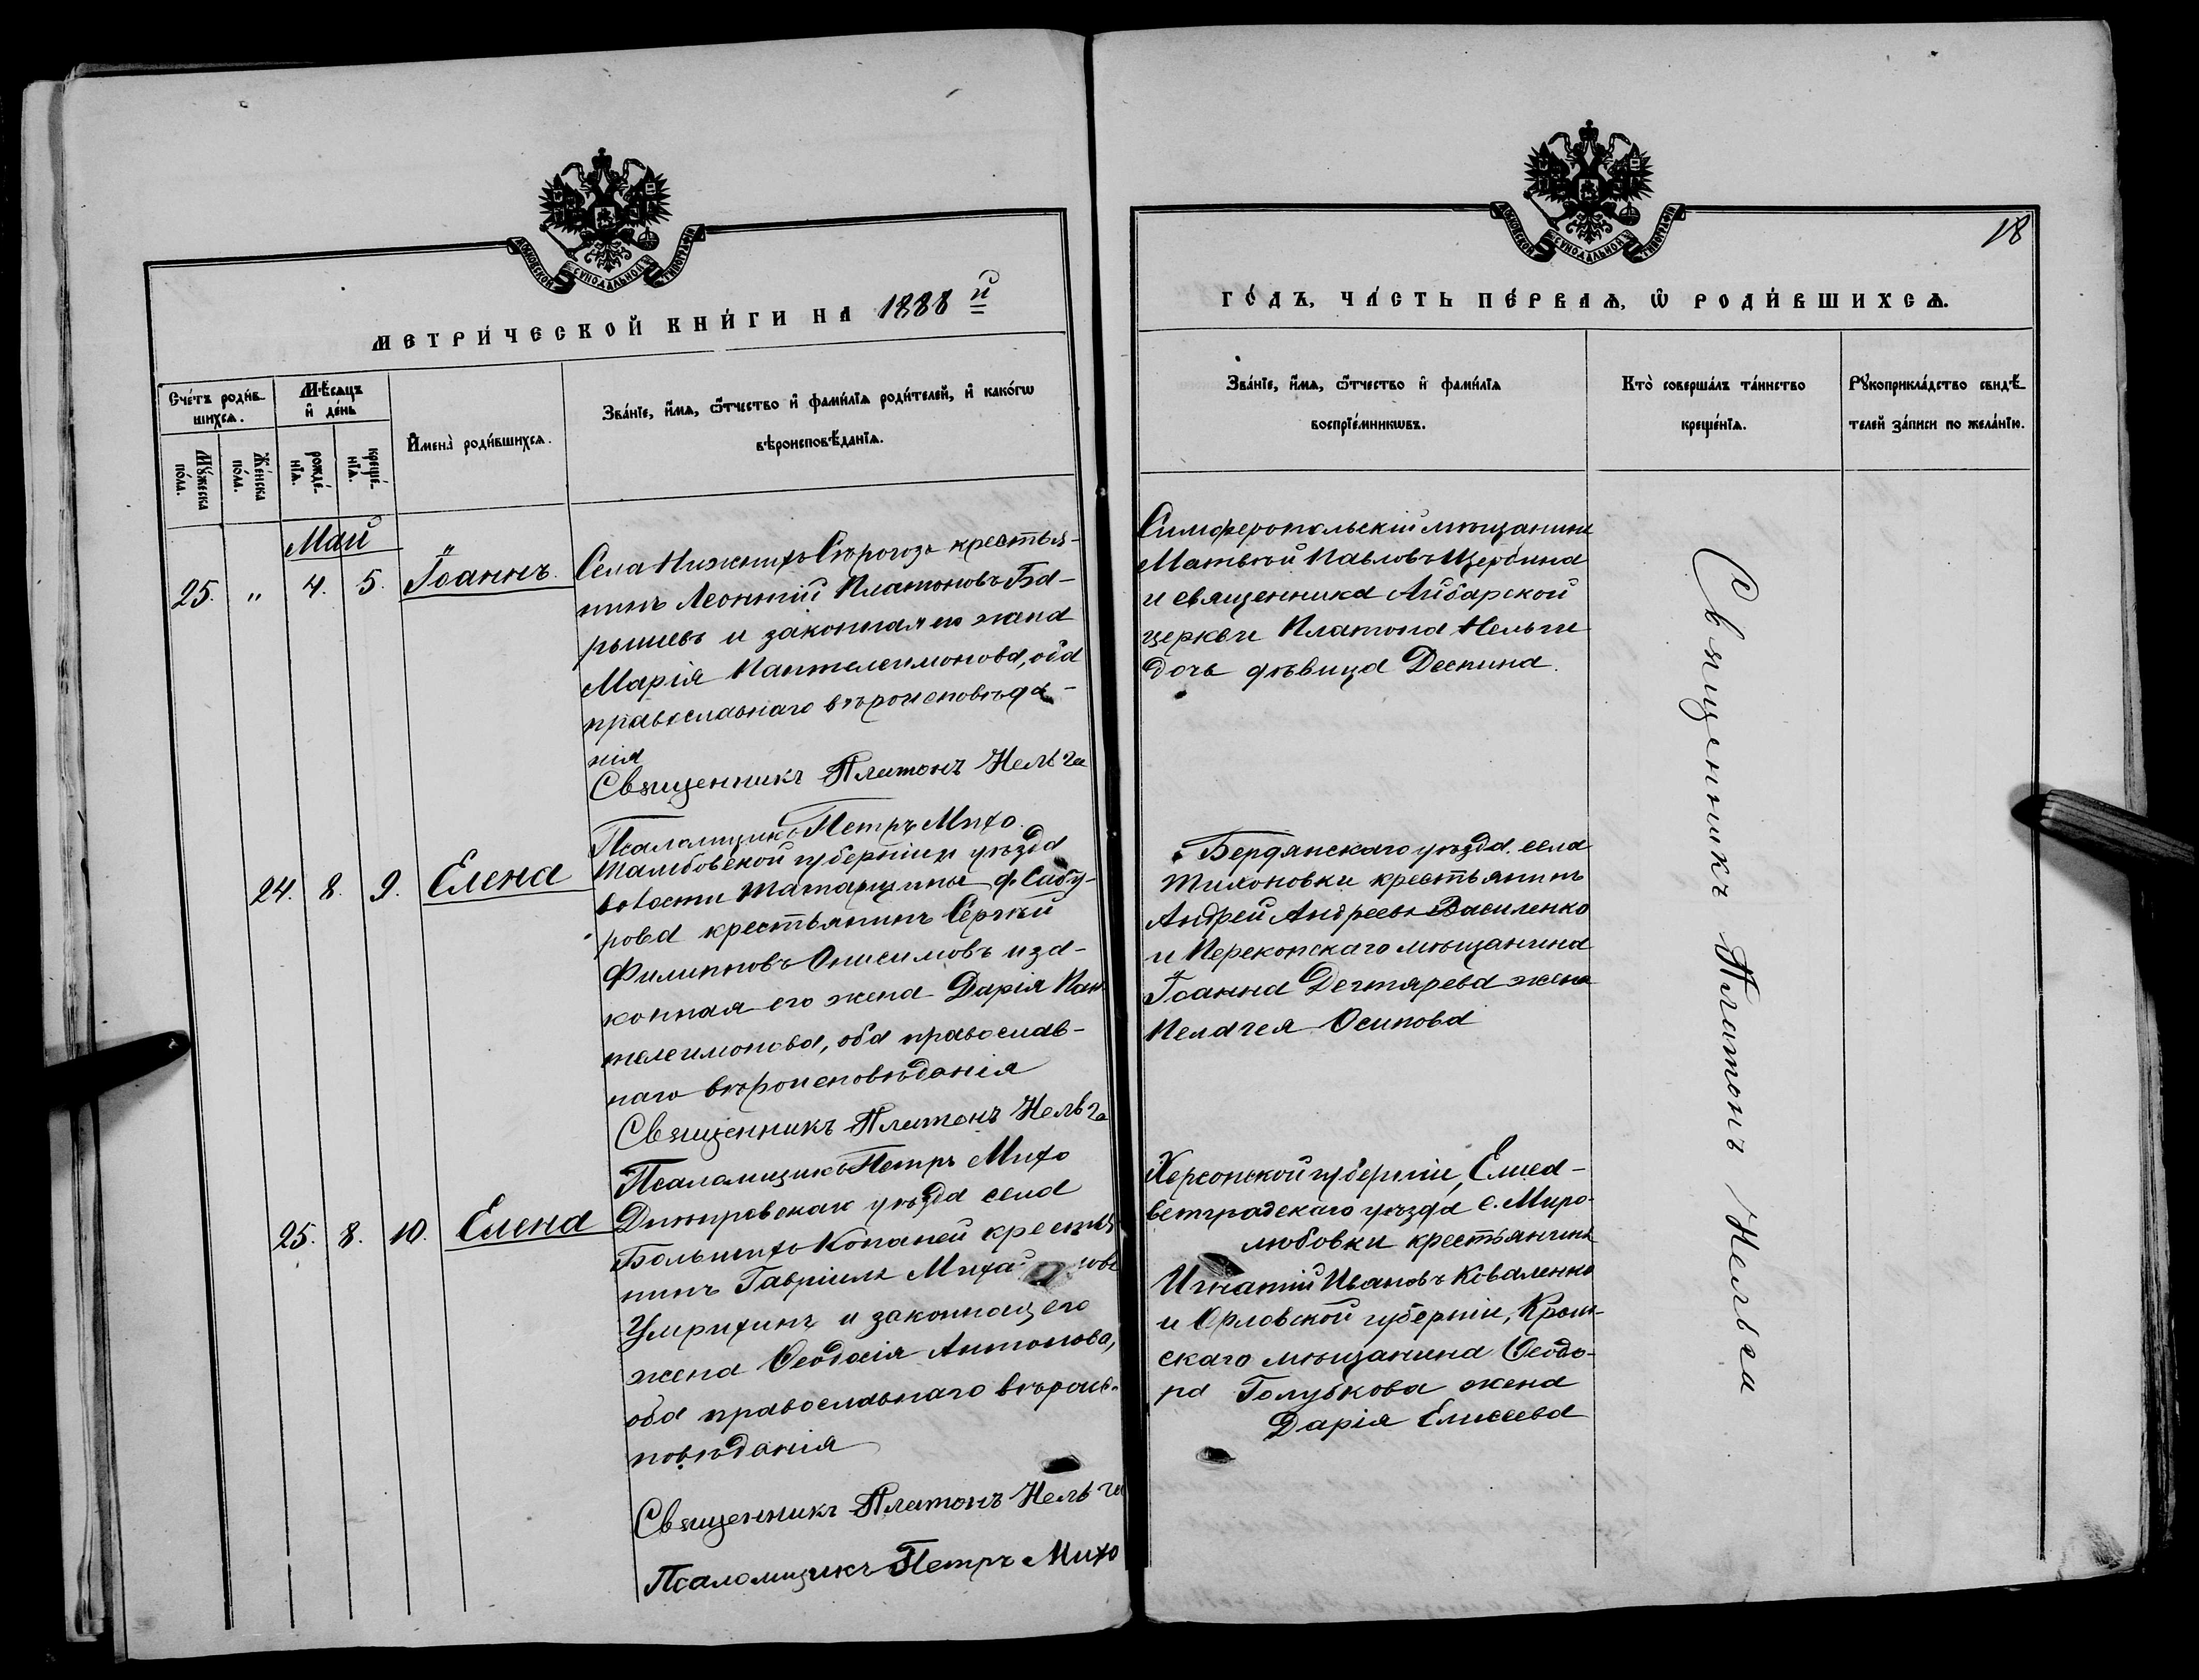 МОСКОВСКОЙ СѴНОДАЛЬНОЙ ТИПОГРАФІИ
МЕТРИ́ЧЕСКОЙ КНИ́ГИ НА 1888 й
Сче́тъ роди́в-
шихсѧ.
Мѣ́сяцъ
и҆ де́нь
Мꙋ́жеска
по́ла.
Же́нска
по́ла.
рожде́-
нїѧ.
креще́-
нїѧ.
И҆мена̀ роди́вшихсѧ.
Зва́нїе, и҆́мѧ, ѻ҆́тчество и҆ фами́лїѧ роди́телей, и҆ како́гѡ
вѣроисповѣ́данїѧ.
Май
25. " 4. 5. Іоаннъ.
Села Нижнихъ Сѣрогозъ крестья-
нинъ Леонтій Платоновъ Ба-
рышевъ и законная его жена
Марія Пантелеимонова, оба
православнаго вѣроисповѣда-
нія
Священникъ Платонъ Нельга
Псаломщикъ Петръ Михо
24. 8. 9. Елена
Тамбовской губерніи уѣзда
волости Татарщины д. Сабу-
рова крестьянинъ Сергѣй
Филипповъ Онисимовъ и за-
конная его жена Дарія Пан-
телеимонова, оба православ-
наго вѣроисповѣданія
Священникъ Платонъ Нельга
Псаломщикъ Петръ Михо
25. 8. 10. Елена
Днѣпровскаго уѣзда села
Большихъ Копаней крестья
нинъ Гавріилъ Миха новъ
Умрихинъ и законная его
жена Ѳеодосія Антонова,
оба православнаго вѣроис-
повѣданія
Священникъ Платонъ Нельга
Псаломщикъ Петръ Михо
МОСКОВСКОЙ СѴНОДАЛЬНОЙ ТИПОГРАФІИ
18
ГО́ДЪ, ЧА́СТЬ ПЕ́РВАѦ, Ѡ҆ РОДИ́ВШИХСѦ.
Зва́нїе, и҆́мѧ, ѻ҆́тчество и҆ фами́лїѧ
воспрїе́мникѡвъ.
Кто̀ соверша́лъ та́инство
креще́нїѧ.
Рꙋкоприкла́дство свидѣ́-
телей за́писи по жела́нїю.
Симферопольскій мѣщанинъ
Матвѣй Павловъ Щербина
и священника Айбарской
церкви Платона Нельги
дочь дѣвица Деспина.
Бердянскаго уѣзда села
Тихоновки крестьянинъ
Андрей Андреевъ Василенко
и Перекопскаго мѣщанина
Іоанна Дегтярева жена
Пелагея Осипова
Херсонской губерніи, Елиса-
ветградскаго уѣзда с. Миро-
любовки крестьянинъ
Игнатій Ивановъ Коваленко
и Орловской губерніи, Кром-
скаго мѣщанина Ѳеодо-
ра Голубкова жена
Дарія Елисеева
Священникъ Платонъ Нельга